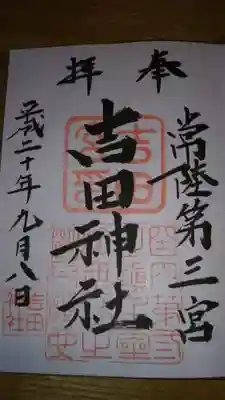 奉拝
常陸第三宮
吉田神社
平成二十年九月八日
吉田神社